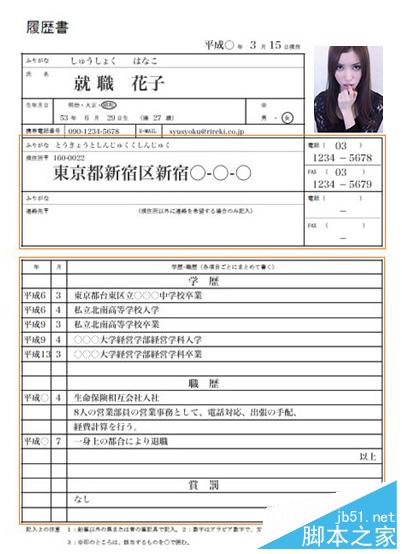 履歴書
平成○ 年 3 月 15 日現在
ふりがな しゅうしょく はなこ
氏 名 就職 花子
生年月日 明治・大正・昭和
53 年 6 月 29 日生 (満 27 歳) 男・女
携帯電話番号 090-1234-5678 E-MAIL syusyoku@rireki.co.jp
ふりがな とうきょうとしんじゅくくしんじゅく
電話 (03)
1234-5678
現住所〒 160-0022
東京都新宿区新宿○-○-○
FAX (03)
1234-5679
ふりがな
電話 ( )
連絡先〒 (現住所以外に連絡を希望する場合のみ記入)
FAX ( )
年 月 学歴・職歴 (各項目ごとにまとめて書く)
学 歴
平成6 3 東京都台東区立○○○中学校卒業
平成6 4 私立北南高等学校入学
平成9 3 私立北南高等学校卒業
平成9 4 ○○○大学経営学部経営学科入学
平成13 3 ○○○大学経営学部経営学科卒業
職 歴
平成○ 4 生命保険相互会社入社
8人の営業部員の営業事務として、電話対応、出張の手配、
経費計算を行う。
平成○ 7 一身上の都合により退職
以上
賞 罰
なし
記入上の注意 1:鉛筆以外の黒または青の筆記具で記入。 2:数字はアラビア数字で、文
3:※印のところは、該当するものを○で囲む。
jb51.net
脚本之家